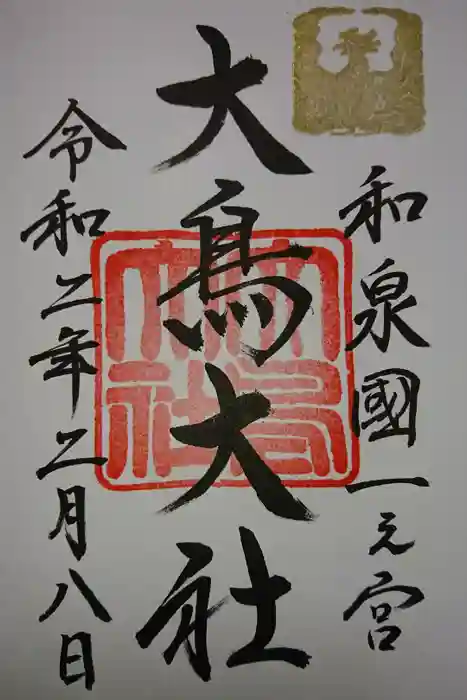 和泉國一之宮
大鳥大社
令和二年二月八日